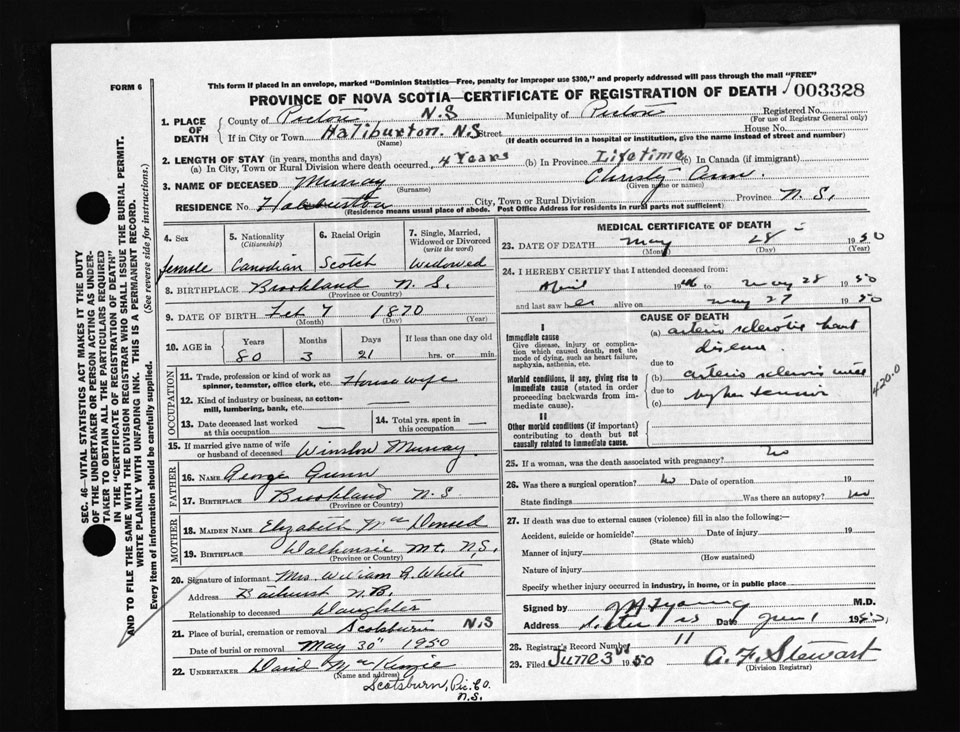 This form if placed in an envelope, marked "Dominion Statistics—Free, penalty for improper use $300," and properly addressed will pass through the mail "FREE"
FORM 6
PROVINCE OF NOVA SCOTIA—CERTIFICATE OF REGISTRATION OF DEATH 003328
1. PLACE OF DEATH County of Pictou N.S Municipality of Pictou Registered No.
(For use of Registrar General only)
If in City or Town Haliburton. N.S Street House No.
(Name) (If death occurred in a hospital or institution, give the name instead of street and number)
2. LENGTH OF STAY (in years, months and days)
(a) In City, Town or Rural Division where death occurred, 4 Years (b) In Province Lifetime (c) In Canada (if immigrant)
3. NAME OF DECEASED Murray Christy Ann.
(Surname) (Given name or names)
RESIDENCE No. Haliburton City, Town or Rural Division Province N.S.
(Residence means usual place of abode. Post Office Address for residents in rural parts not sufficient)
4. Sex
female
5. Nationality
(Citizenship)
Canadian
6. Racial Origin
Scotch
7. Single, Married, Widowed or Divorced
(write the word)
Widowed
8. BIRTHPLACE Brookland N.S.
(Province or Country)
9. DATE OF BIRTH Feb 7 1870
(Month) (Day) (Year)
10. AGE in Years Months Days If less than one day old
80 3 21 hrs. or min.
OCCUPATION
11. Trade, profession or kind of work as spinner, teamster, office clerk, etc. House wife
12. Kind of industry or business, as cotton-mill, lumbering, bank, etc. —
13. Date deceased last worked at this occupation —
14. Total yrs. spent in this occupation —
15. If married give name of wife or husband of deceased Winslow Murray.
FATHER
16. NAME George Gunn
17. BIRTHPLACE Brookland N.S
(Province or Country)
MOTHER
18. MAIDEN NAME Elizabeth
19. BIRTHPLACE Dalhousie Mt. N.S.
(Province or Country)
20. Signature of informant Mrs. William G. White
Address Bathurst N.B.
Relationship to deceased Daughter
21. Place of burial, cremation or removal Scotsburn N.S
Date of burial or removal May 30" 1950
22. UNDERTAKER David MacKenzie
(Name and address)
Scotsburn, Pic. Co.
N.S.
MEDICAL CERTIFICATE OF DEATH
23. DATE OF DEATH May 28 1950
(Month) (Day) (Year)
24. I HEREBY CERTIFY that I attended deceased from:
April 1946 to May 28 1950
and last saw her alive on May 27 1950
CAUSE OF DEATH
I
Immediate cause
Give disease, injury or complication which caused death, not the mode of dying, such as heart failure, asphyxia, asthenia, etc.
(a) arterio sclerotic heart
disease
due to
Morbid conditions, if any, giving rise to immediate cause (stated in order proceeding backwards from immediate cause).
(b) arterio sclerosis with
due to
(c) hypertension
4200
II
Other morbid conditions (if important) contributing to death but not causally related to immediate cause.
25. If a woman, was the death associated with pregnancy? No
26. Was there a surgical operation? No Date of operation 19
State findings Was there an autopsy? No
27. If death was due to external causes (violence) fill in also the following:—
Accident, suicide or homicide? Date of injury 19
(State which)
Manner of injury
(How sustained)
Nature of injury
Specify whether injury occurred in industry, in home, or in public place
Signed by Young M.D.
Address Date June 1 1950
28. Registrar's Record Number 11
29. Filed June 3 1950 A. F. Stewart
(Division Registrar)
SEC. 46—VITAL STATISTICS ACT MAKES IT THE DUTY OF THE UNDERTAKER OR PERSON ACTING AS UNDERTAKER TO OBTAIN ALL THE PARTICULARS REQUIRED IN THE "CERTIFICATE OF REGISTRATION OF DEATH" AND TO FILE THE SAME WITH THE DIVISION REGISTRAR WHO SHALL ISSUE THE BURIAL PERMIT.
WRITE PLAINLY WITH UNFADING INK. THIS IS A PERMANENT RECORD.
Every item of information should be carefully supplied. (See reverse side for instructions.)